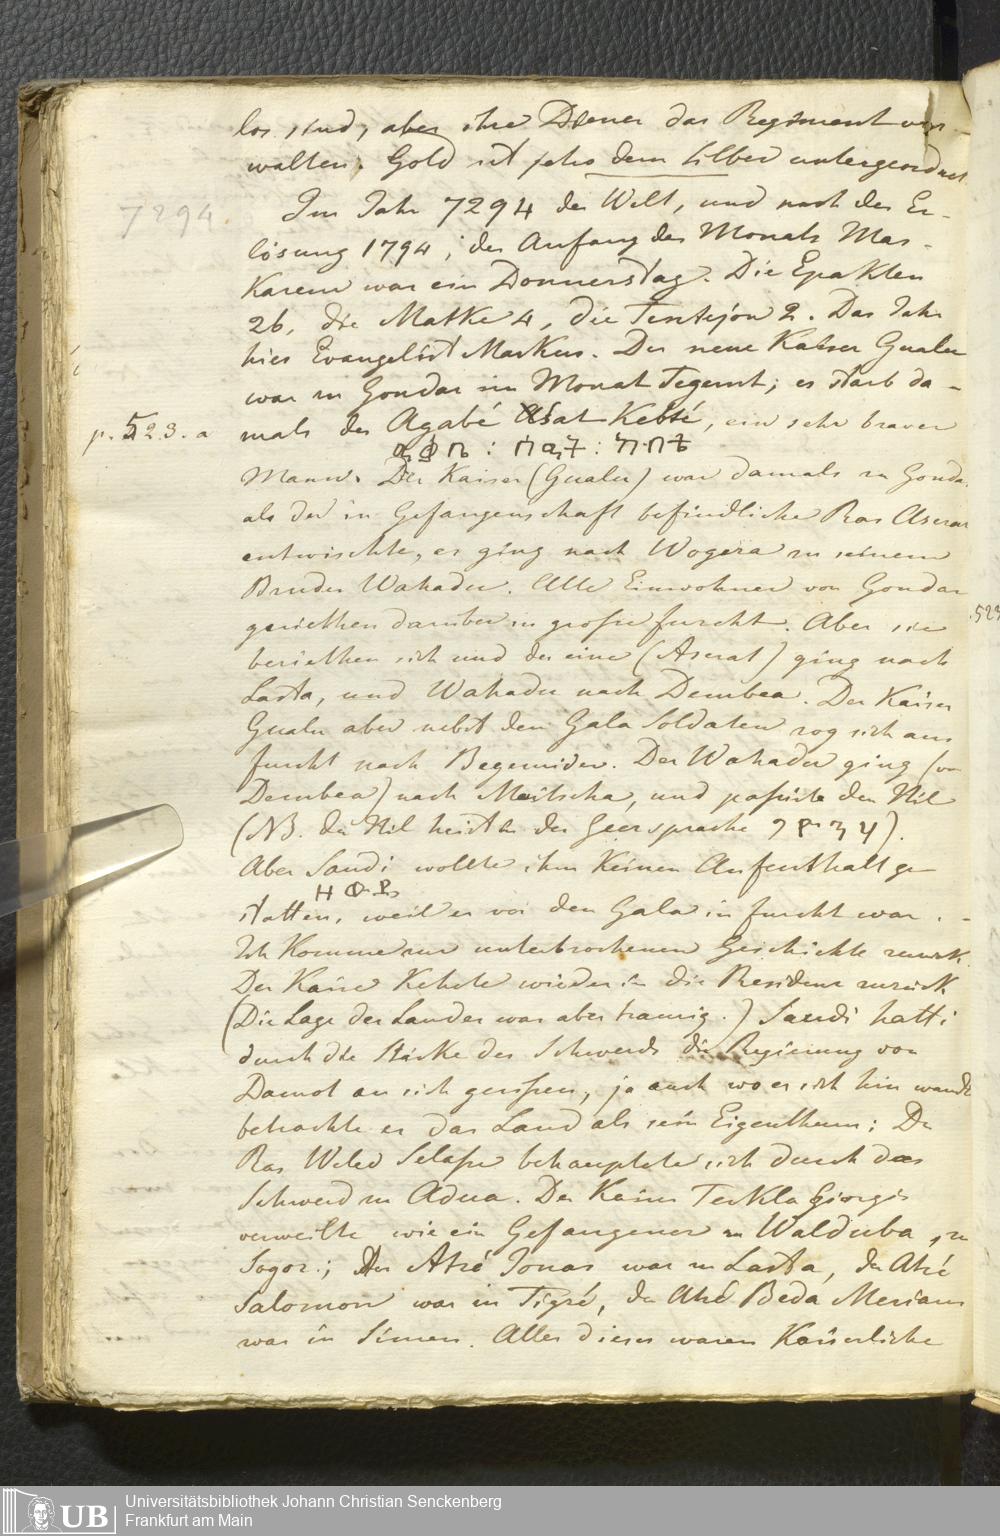 los sind, aber ihre Diener das Regiment ver-
walten. Gold ist jetzo dem Silber untergeordnet.
7294.
Im Jahr 7294 der Welt, und nach der Er-
lösung 1794, der Anfang des Monats Mas-
karem war ein Donnerstag. Die Epakten
26, die Matke 4, die Tentejon 2. Das Jahr
hies Evangelist Markus. Der neue Kaiser Gualu
war in Gondar im Monat Tegemt; es starb da-
p. 523. a
mals der Agabé Asat Kebté, ein sehr braver
Mann. Der Kaiser (Gualu) war damals zu Gondar
als der in Gefangenschaft befindliche Ras Aserat
entwischte, er ging nach Wogera zu seinem
Bruder Wahadu. Alle Einwohner von Gondar
geriethen darüber in grosse furcht. Aber sie
beriethen sich und der eine (Aserat) ging nach
Lasta, und Wahadu nach Dembea. Der Kaiser
Gualu aber nebst den Gala Soldaten zog sich aus
furcht nach Begemider. Der Wahadu ging (von
Dembea) nach Maitscha, und passirte den Nil
(NB. der Nil heist in der Geezsprache
Aber Saudi wollte ihm keinen Aufenthalt ge-
statten, weil er vor den Gala in furcht war.
Ich komme zur unterbrochenen Geschichte zurück.
Der Kaiser kehrte wieder in die Residenz zurück
(Die Lage des Landes war aber traurig.) Saudi hatte
durch die Stärke des Schwerds die Regierung von
Damot an sich gerissen, ja auch wo er sich hin wandte
betrachtete er das Land als sein Eigenthum; Der
Ras Weled Selasse behauptete sich durch das
Schwerd zu Adua. Der Kaiser Teckla Giorgis
verweilte wie ein Gefangener zu Walduba, zu
Sogor.; Der Atsé Jonas war zu Lasta, der Atsé
Salomon war in Tigré, der Atsé Beda Meriam
war in Simen. Alles dieses waren Kaiserliche
523
UB
Universitätsbibliothek Johann Christian Senckenberg
Frankfurt am Main